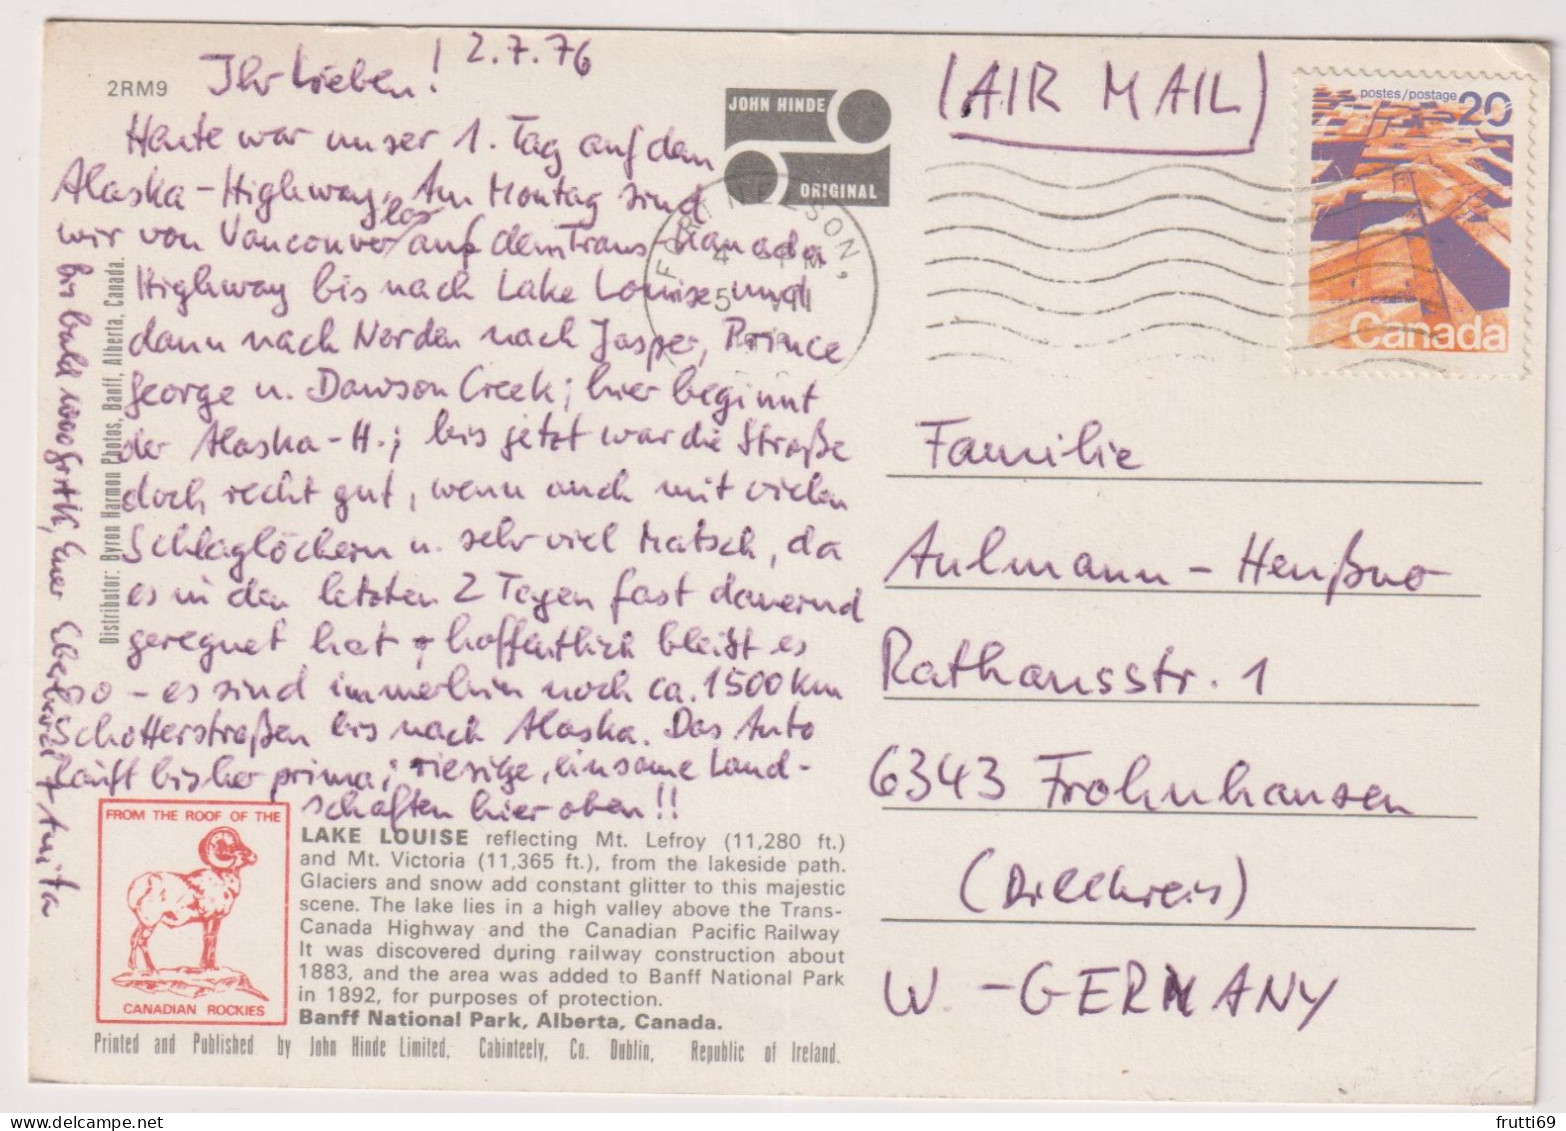 2RM9
2.7.76
Ihr Lieben!
Heute war unser 1. Tag auf dem
Alaska-Highway. Am Montag sind
wir von Vancouver los auf dem Trans-Kanada
Highway bis nach Lake Louise und
dann nach Norden nach Jasper, Prince
George u. Dawson Creek; hier beginnt
der Alaska-H.; bis jetzt war die Straße
doch recht gut, wenn auch mit vielen
Schlaglöchern u. sehr viel Matsch, da
es in den letzten 2 Tagen fast dauernd
geregnet hat, hoffentlich bleibt es
so - es sind immerhin noch ca. 1500 km
Schotterstraßen bis nach Alaska. Das Auto
läuft bisher prima; riesige, einsame Land-
schaften hier oben!!
bis bald Euer Eberhard + Anita
Distributor: Byron Harmon Photos, Banff, Alberta, Canada.
JOHN HINDE
ORIGINAL
FORT NELSON,
4 PM
5 VII
(AIR MAIL)
postes/postage 20
Canada
Familie
Aulmann-Henßno
Rathausstr. 1
6343 Frohnhausen
(Dillkreis)
W.-GERMANY
FROM THE ROOF OF THE
CANADIAN ROCKIES
LAKE LOUISE reflecting Mt. Lefroy (11,280 ft.)
and Mt. Victoria (11,365 ft.), from the lakeside path.
Glaciers and snow add constant glitter to this majestic
scene. The lake lies in a high valley above the Trans-
Canada Highway and the Canadian Pacific Railway
It was discovered during railway construction about
1883, and the area was added to Banff National Park
in 1892, for purposes of protection.
Banff National Park, Alberta, Canada.
Printed and Published by John Hinde Limited, Cabinteely, Co. Dublin, Republic of Ireland.
frutti69